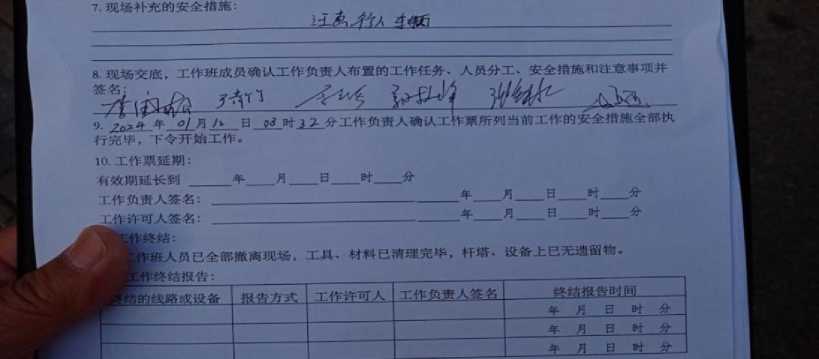 7. 现场补充的安全措施:
注意行人车辆
8. 现场交底,工作班成员确认工作负责人布置的工作任务、人员分工、安全措施和注意事项并
签名:
9. 2024 年 01 月 12 日 08 时 32 分工作负责人确认工作票所列当前工作的安全措施全部执
行完毕,下令开始工作。
10. 工作票延期:
有效期延长到 ____年____月____日____时____分
工作负责人签名: ____年____月____日____时____分
工作许可人签名: ____年____月____日____时____分
工作终结:
工作班人员已全部撤离现场,工具、材料已清理完毕,杆塔、设备上已无遗留物。
工作终结报告:
终结的线路或设备 报告方式 工作许可人 工作负责人签名 终结报告时间
年 月 日 时 分
年 月 日 时 分
年 月 日 时 分